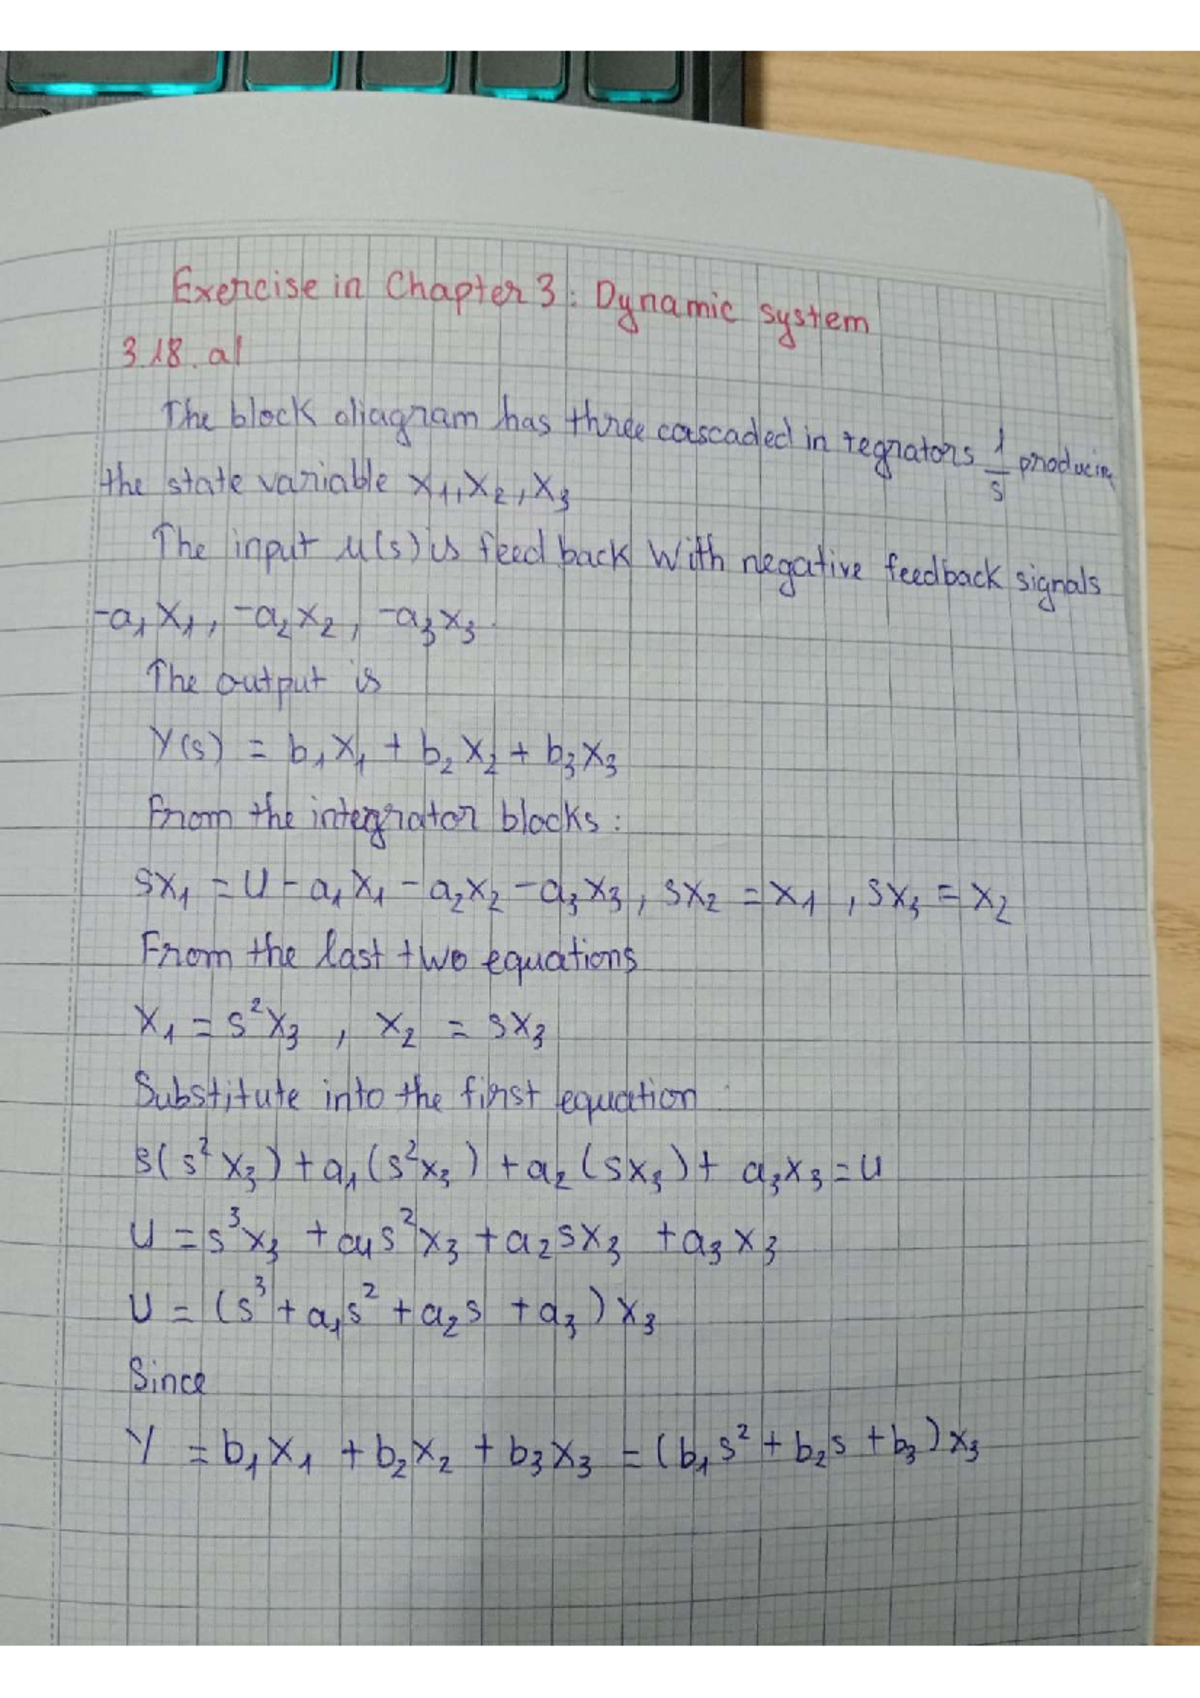 Exercise in Chapter 3: Dynamic system
3.18.a/
The block diagram has three cascaded in tegrators 1/s producing
the state variable x₁, x₂, x₃
The input u(s) is feed back With negative feedback signals
-a₁x₁, -a₂x₂, -a₃x₃.
The output is
Y(s) = b₁x₁ + b₂x₂ + b₃x₃
From the integrator blocks:
sx₁ = U - a₁x₁ - a₂x₂ - a₃x₃, sx₂ = x₁, sx₃ = x₂
From the last two equations
x₁ = s²x₃, x₂ = sx₃
Substitute into the first equation
s(s²x₃) + a₁(s²x₃) + a₂(sx₃) + a₃x₃ = U
U = s³x₃ + a₁s²x₃ + a₂sx₃ + a₃x₃
U = (s³ + a₁s² + a₂s + a₃)x₃
Since
Y = b₁x₁ + b₂x₂ + b₃x₃ = (b₁s² + b₂s + b₃)x₃